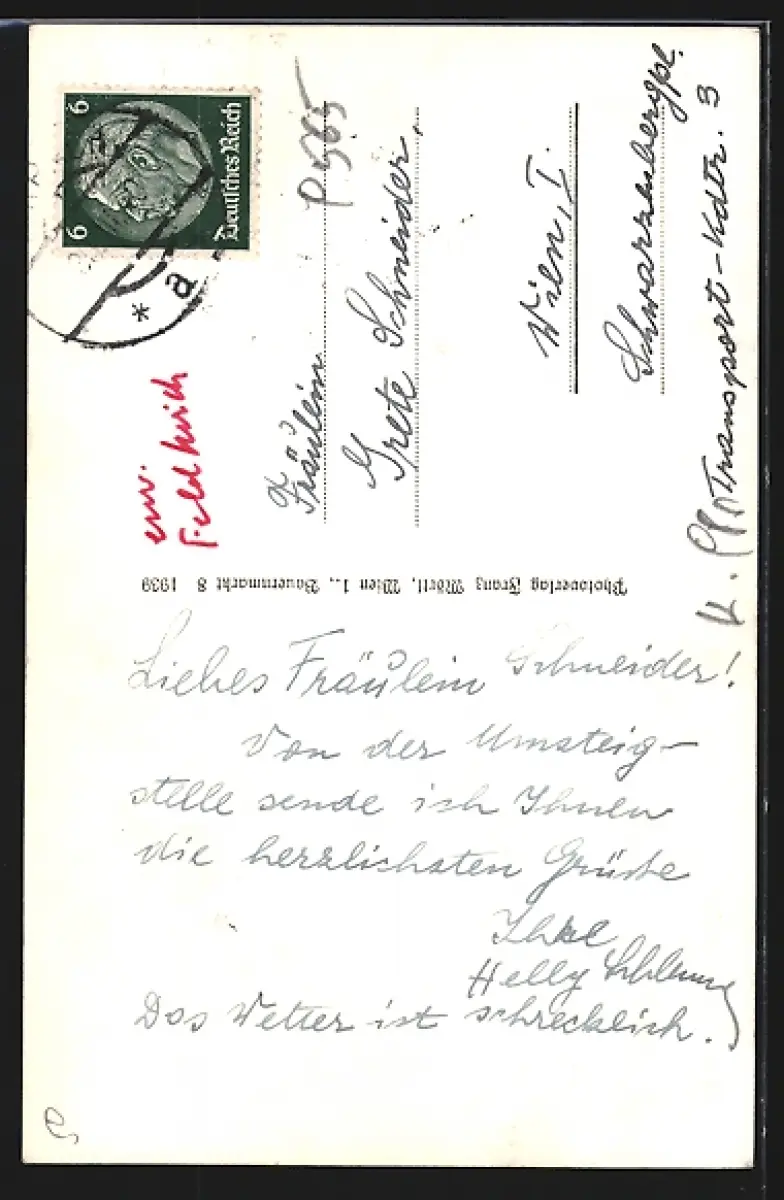 6
6
Deutsches Reich
* a
Feldkirich
Fräulein
Grete Schneider,
Wien, I.
Schwarzenbergpl.
Transport-Kdtr. 3
Photoverlag Franz Mörtl, Wien 1., Bauernmarkt 8 1939
Liebes Fräulein Schneider!
Von der Umsteig-
stelle sende ich Ihnen
die herzlichsten Grüsse
Ihre
Helly
Das Wetter ist schrecklich.